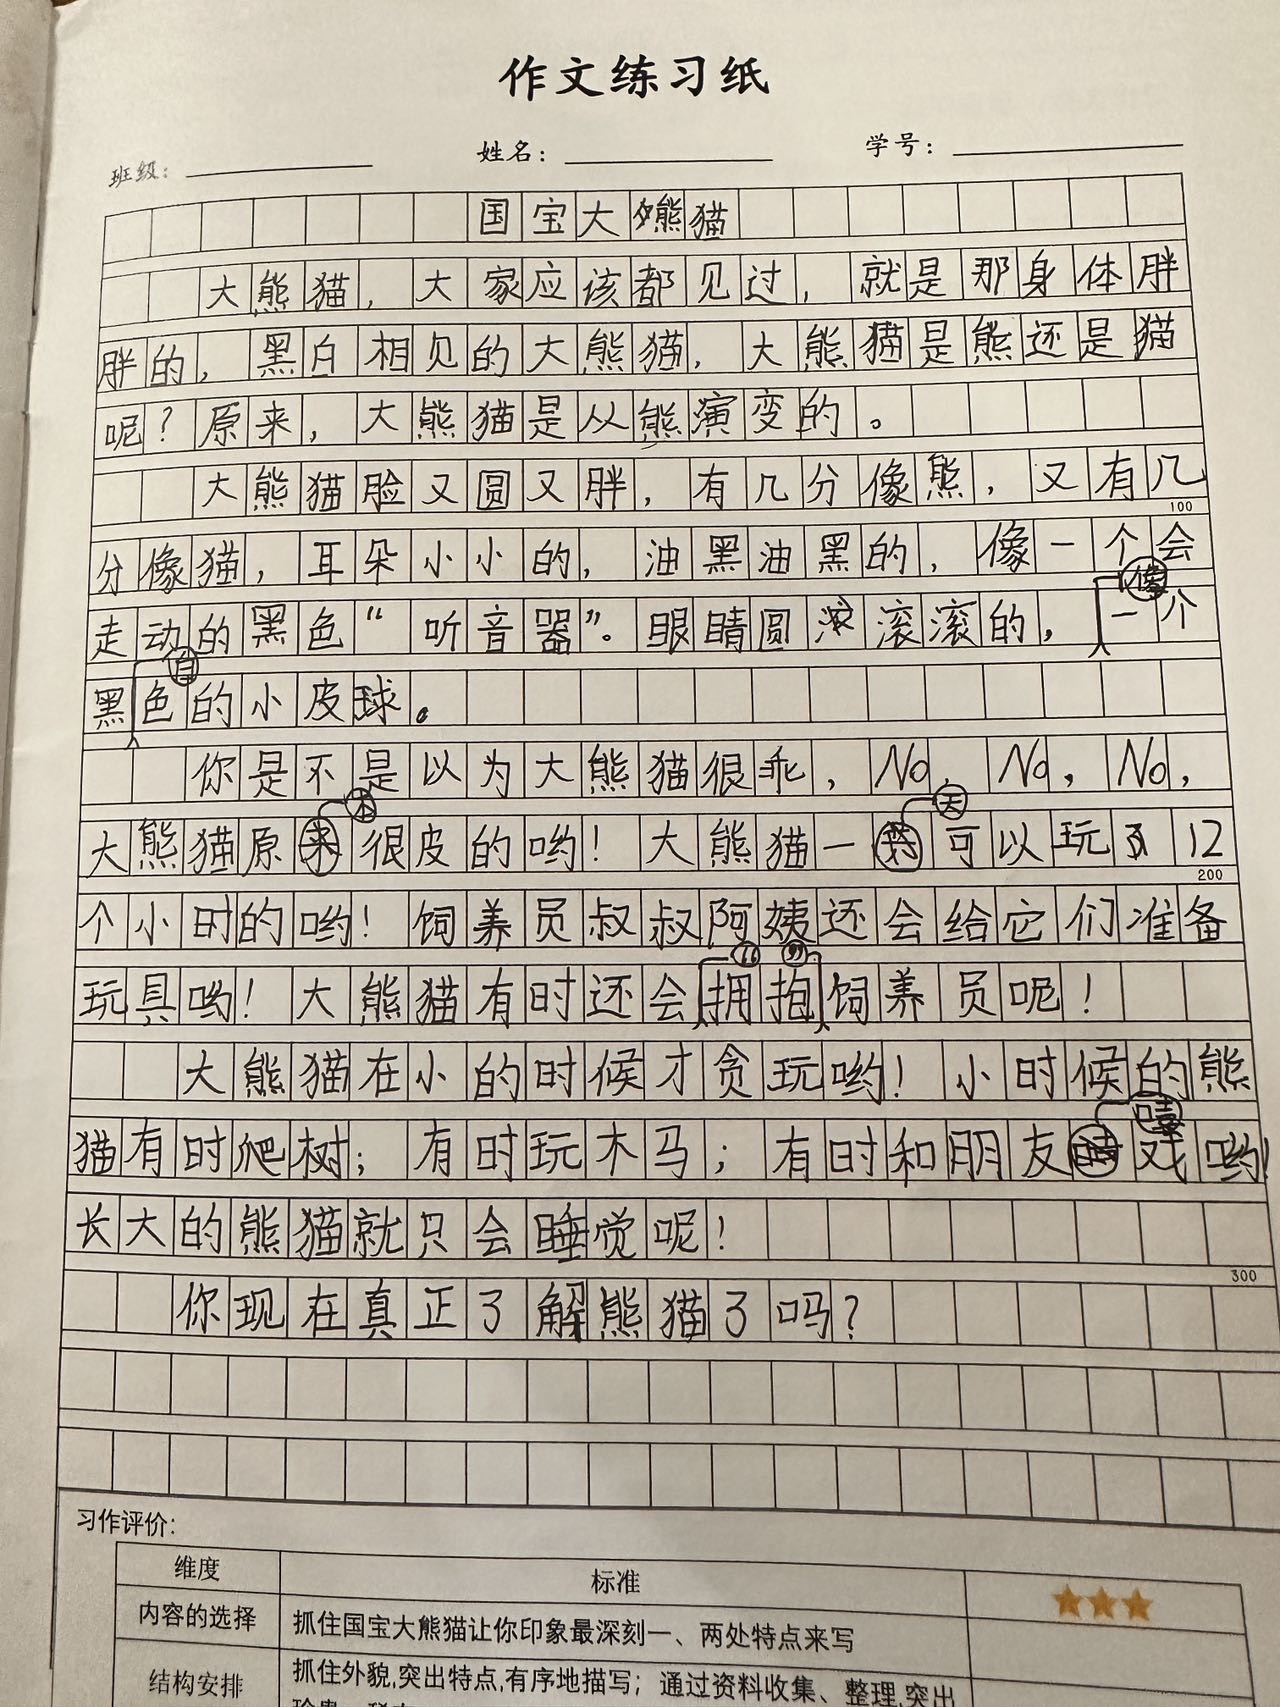 作文练习纸
班级： 姓名： 学号：
国宝大熊猫
大熊猫，大家应该都见过，就是那身体胖
胖的，黑白相见的大熊猫，大熊猫是熊还是猫
呢？原来，大熊猫是从熊演变的。
大熊猫脸又圆又胖，有几分像熊，又有几
100
分像猫，耳朵小小的，油黑油黑的，像一个会
走动的黑色“听音器”。眼睛圆滚滚的，像一个
黑白色的小皮球。
你是不是以为大熊猫很乖，No，No，No，
大熊猫原本很皮的哟！大熊猫一天可以玩12
200
个小时的哟！饲养员叔叔阿姨还会给它们准备
玩具哟！大熊猫有时还会“拥抱”饲养员呢！
大熊猫在小的时候才贪玩哟！小时候的熊
猫有时爬树；有时玩木马；有时和朋友嘻戏哟！
长大的熊猫就只会睡觉呢！
300
你现在真正了解熊猫了吗？
习作评价：
维度 标准
内容的选择 抓住国宝大熊猫让你印象最深刻一、两处特点来写
结构安排 抓住外貌,突出特点,有序地描写；通过资料收集、整理,突出